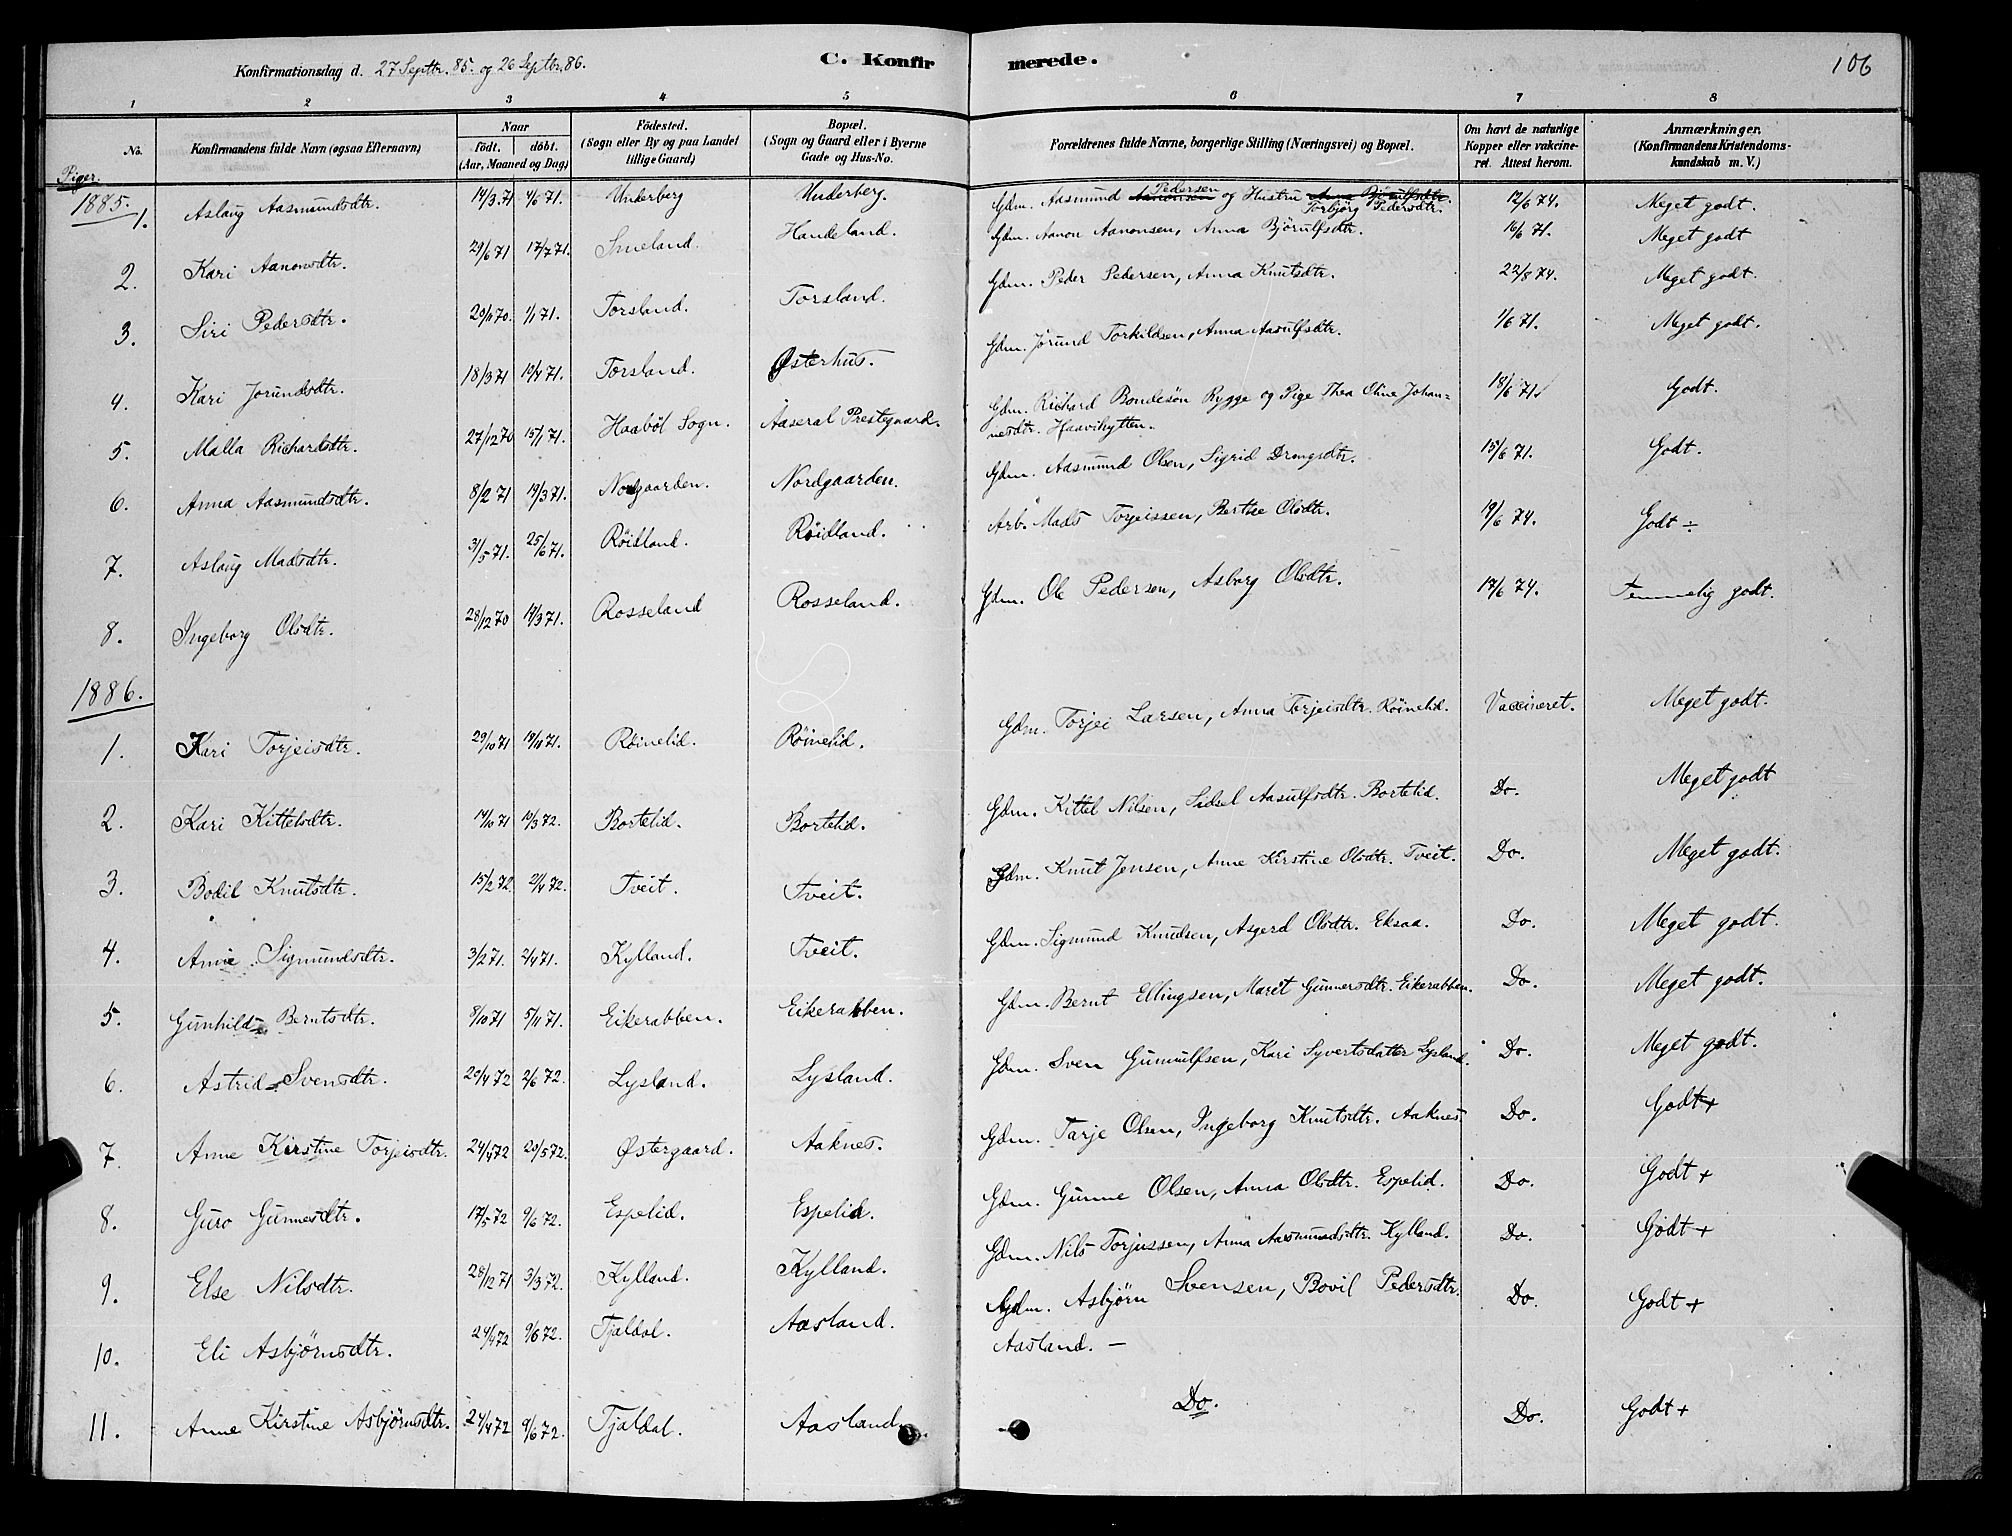 Konfirmationsdag d. 27 Septbr. 85. og 26 Septbr. 86.
C. Konfirmerede.
106
1 2 3 4 5 6 7 8
No.
Konfirmandens fulde Navn (ogsaa Efternavn)
Naar
födt. döbt.
(Aar, Maaned og Dag)
Födested.
(Sogn eller By og paa Landet
tillige Gaard)
Bopæl.
(Sogn og Gaard eller i Byerne
Gade og Hus-No.
Forældrenes fulde Navne, borgerlige Stilling (Næringsvei) og Bopæl.
Om havt de naturlige
Kopper eller vakcine-
ret. Attest herom.
Anmærkninger.
(Konfirmandens Kristendoms-
kundskab m. V.)
Piger.
1885.
1. Aslaug Aasmundsdtr. 14/3 71 4/6 71. Underberg Underberg. Gdm. Aasmund Aanonsen Pedersen og Hustru Anna Björulfsdtr. Torbjörg Pedersdtr. 12/6 74. Meget godt.
2. Kari Aanonsdtr. 29/6 71 17/7 71. Smeland. Handeland. Gdm. Aanon Aanonsen, Anna Björulfsdtr. 16/6 71. Meget godt
3. Siri Pedersdtr. 29/11 70. 1/1 71. Torsland. Torsland. Gdm. Peder Pedersen, Anna Knutsdtr. 22/8 74. Meget godt.
4. Kari Jorundsdtr. 18/3 71 10/4 71. Torsland. Østerhus. Gdm. Jörund Torkildsen, Anna Aasulfsdtr. 1/6 71. Meget godt.
5. Malla Richardsdtr. 27/12 70 15/1 71. Haaböl Sogn. Aaseral Prestegaard. Gdm. Richard Bondesön Rygge og Pige Thea Oline Johan=
nesdtr. Haavihytten. 18/6 71. Godt.
6. Anna Aasmundsdtr. 8/2 71 19/3 71. Nordgaarden. Nordgaarden. Gdm. Aasmund Olsen, Sigrid Drengsdtr. 15/6 71. Godt.
7. Aslaug Madsdtr. 31/5 71. 25/6 71. Röidland. Röidland. Arb. Mads Torjeissen, Berthe Olsdtr. 19/6 74. Godt ÷
8. Ingeborg Olsdtr. 28/12 70 19/3 71. Rosseland Rosseland. Gdm. Ole Pedersen, Asborg Olsdtr. 17/6 74. Temmelig godt.
1886.
1. Kari Torjeisdtr. 29/10 71 19/11 71. Röinelid. Röinelid. Gdm. Torjei Larsen, Anna Torjeisdtr. Röinelid. Vaccineret. Meget godt.
2. Kari Kittelsdtr. 14/10 71 10/3 72. Bortelid. Bortelid. Gdm. Kittel Nilsen, Sidsel Aasulfsdtr. Bortelid. Do. Meget godt
3. Bodil Knutsdtr. 15/2 72. 2/4 72. Tveit. Tveit. Gdm. Knut Jensen, Anne Kirstine Olsdtr. Tveit. Do. Meget godt.
4. Anne Sigmundsdtr. 3/2 71. 2/4 71. Kylland. Tveit. Gdm. Sigmund Knudsen, Asgerd Olsdtr. Eksaa. Do. Meget godt.
5. Gunhild Berntsdtr. 8/10 71 5/11 71. Eikerabben. Eikerabben. Gdm. Bernt Ellingsen, Maret Gunnersdtr. Eikerabben. Do. Meget godt.
6. Astrid Svensdtr. 20/4 72 2/6 72. Lysland. Lysland. Gdm. Sven Gunnulfsen, Kari Syvertsdatter Lysland. Do. Meget godt.
7. Anne Kirstine Torjeisdtr. 24/4 72 20/5 72. Østergaard. Aaknes. Gdm. Tarje Olsen, Ingeborg Knutsdtr. Aaknes. Do. Godt+
8. Guro Gunnesdtr. 17/5 72 9/6 72. Espelid. Espelid. Gdm. Gunne Olsen, Anna Olsdtr. Espelid. Do. Godt +
9. Else Nilsdtr. 28/12 71 3/3 72. Kylland. Kylland. Gdm. Nils Torjussen, Anna Aasmundsdtr. Kylland. Do. Godt +
10. Eli Asbjörnsdtr. 24/4 72 9/6 72. Tjaldal. Aasland. Gdm. Asbjörn Svensen, Bovil Pedersdtr.
Aasland. — Do. Godt +
11. Anne Kirstine Asbjörnsdtr. 24/4 72 9/6 72. Tjaldal. Aasland. Do. Do. Godt +